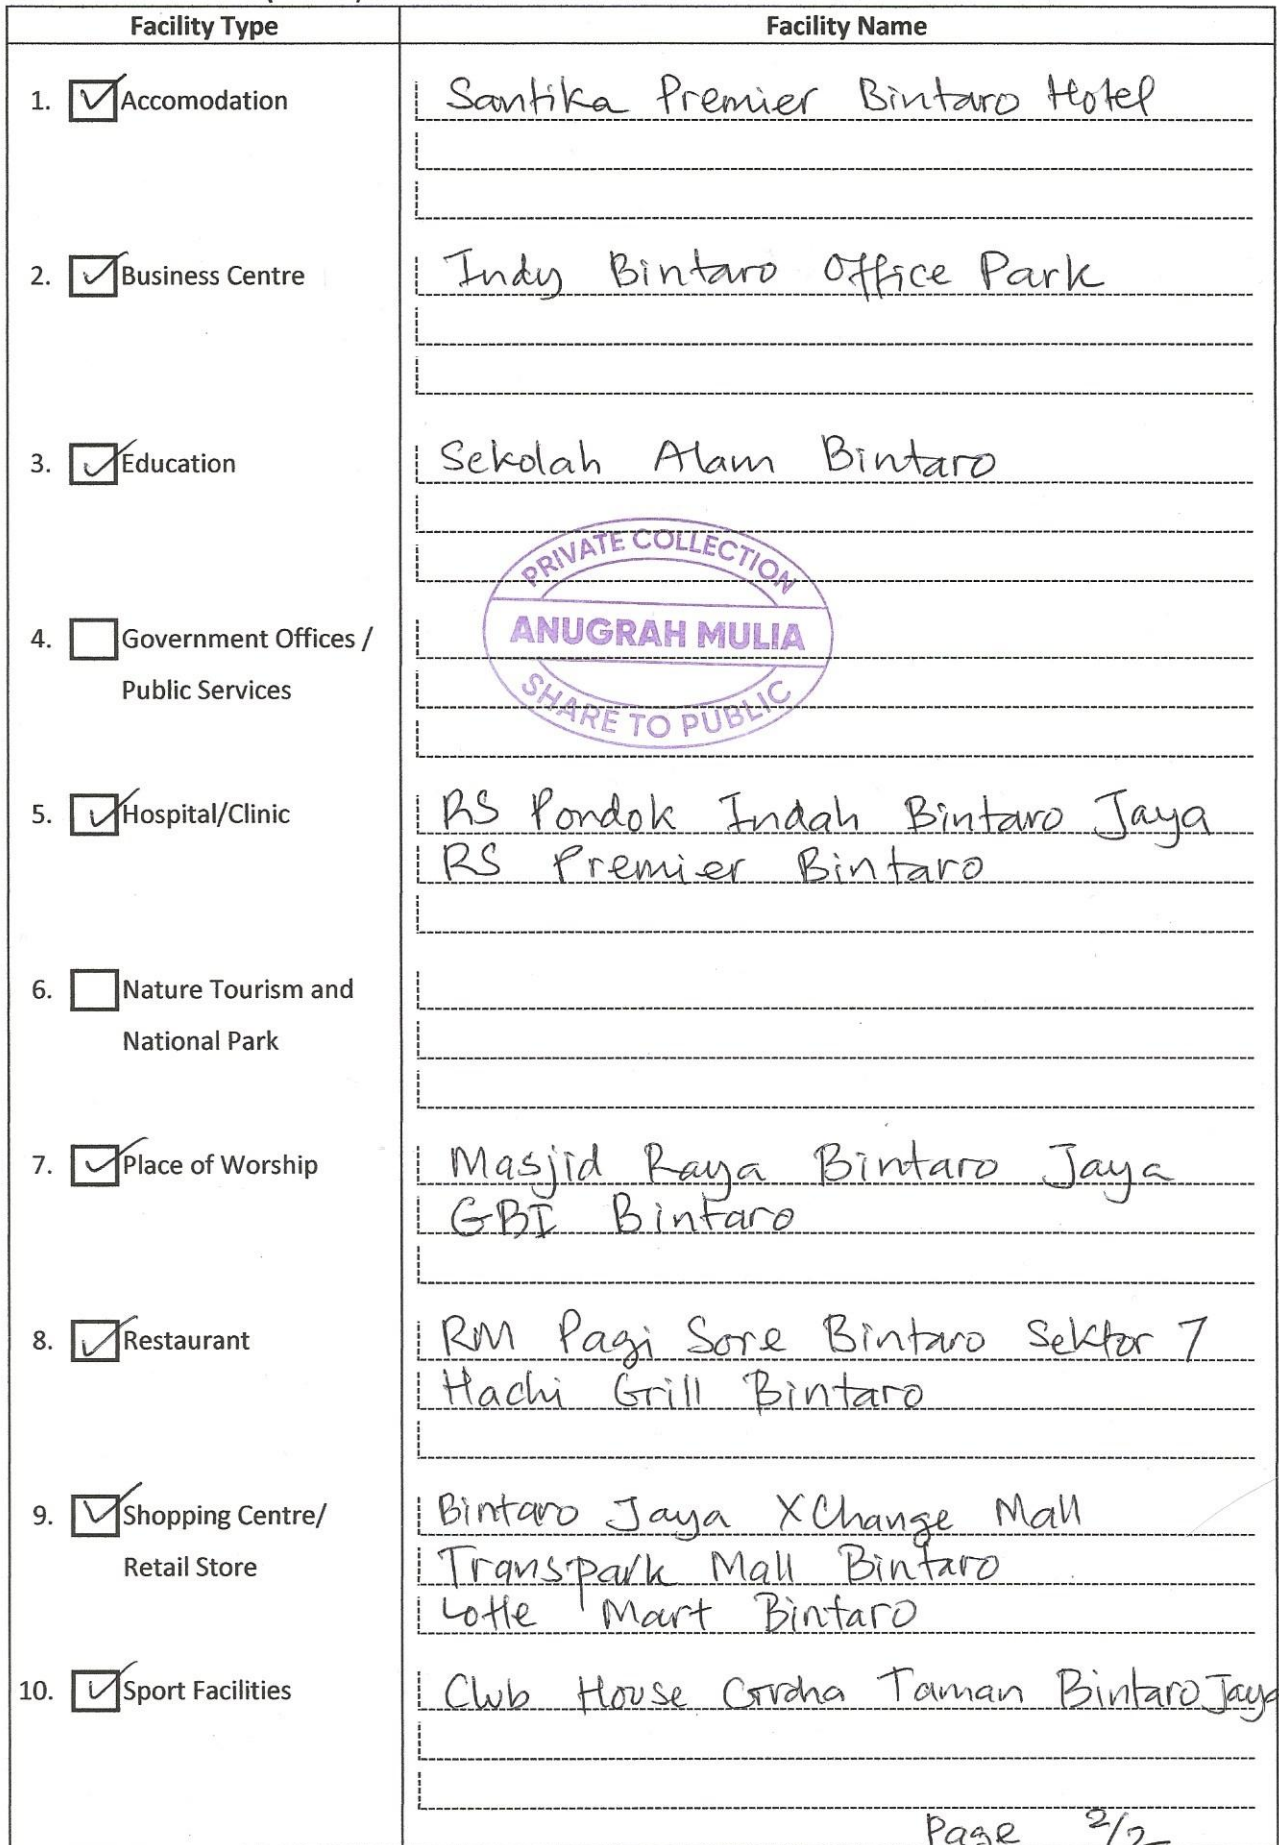 Facility Type
Facility Name
1. Accomodation
Santika Premier Bintaro Hotel
2. Business Centre
Indy Bintaro Office Park
3. Education
Sekolah Alam Bintaro
PRIVATE COLLECTION
ANUGRAH MULIA
SHARE TO PUBLIC
4. Government Offices /
Public Services
5. Hospital/Clinic
RS Pondok Indah Bintaro Jaya
RS Premier Bintaro
6. Nature Tourism and
National Park
7. Place of Worship
Masjid Raya Bintaro Jaya
GBI Bintaro
8. Restaurant
RM Pagi Sore Bintaro Sektor 7
Hachi Grill Bintaro
9. Shopping Centre/
Retail Store
Bintaro Jaya XChange Mall
Transpark Mall Bintaro
Lotte Mart Bintaro
10. Sport Facilities
Club House Taman Bintaro Jaya
Page 2/2